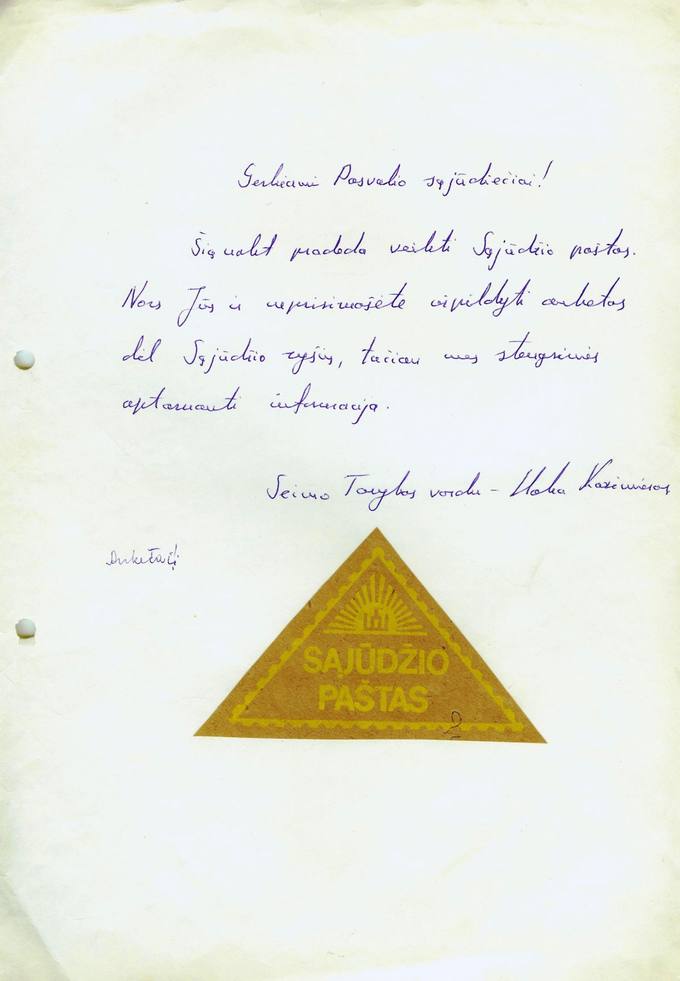 Gerbiami Pasvalio sąjūdiečiai!
Šią nakt pradeda veikti Sąjūdžio paštas.
Nors Jūs ir neprisiruošėte užpildyti anketas
dėl Sąjūdžio ryšių, tačiau mes stengsimės
aptarnauti informacija.
Seimo Tarybos vardu - Kazimieras
SĄJŪDŽIO
PAŠTAS
2